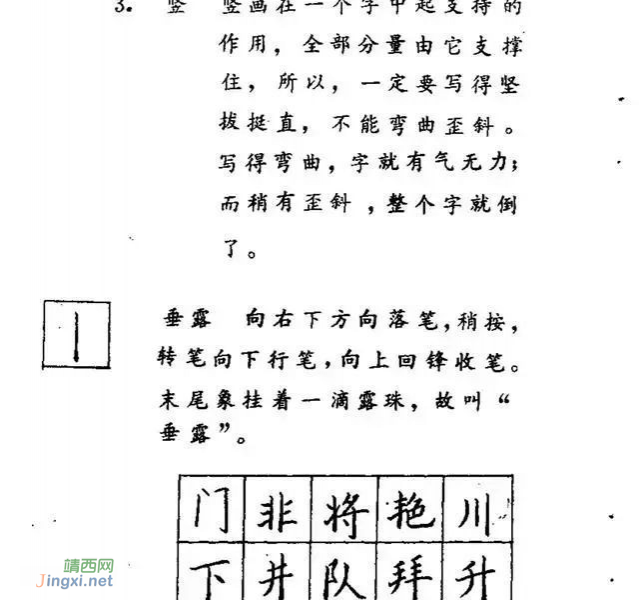 3. 竖 竖画在一个字中起支持的
作用，全部分量由它支撑
住，所以，一定要写得坚
拔挺直，不能弯曲歪斜。
写得弯曲，字就有气无力；
而稍有歪斜，整个字就倒
了。
垂露 向右下方向落笔，稍按，
转笔向下行笔，向上回锋收笔。
末尾象挂着一滴露珠，故叫“
垂露”。
门 非 将 艳 川
下 井 队 拜 升
靖西网
Jingxi.net